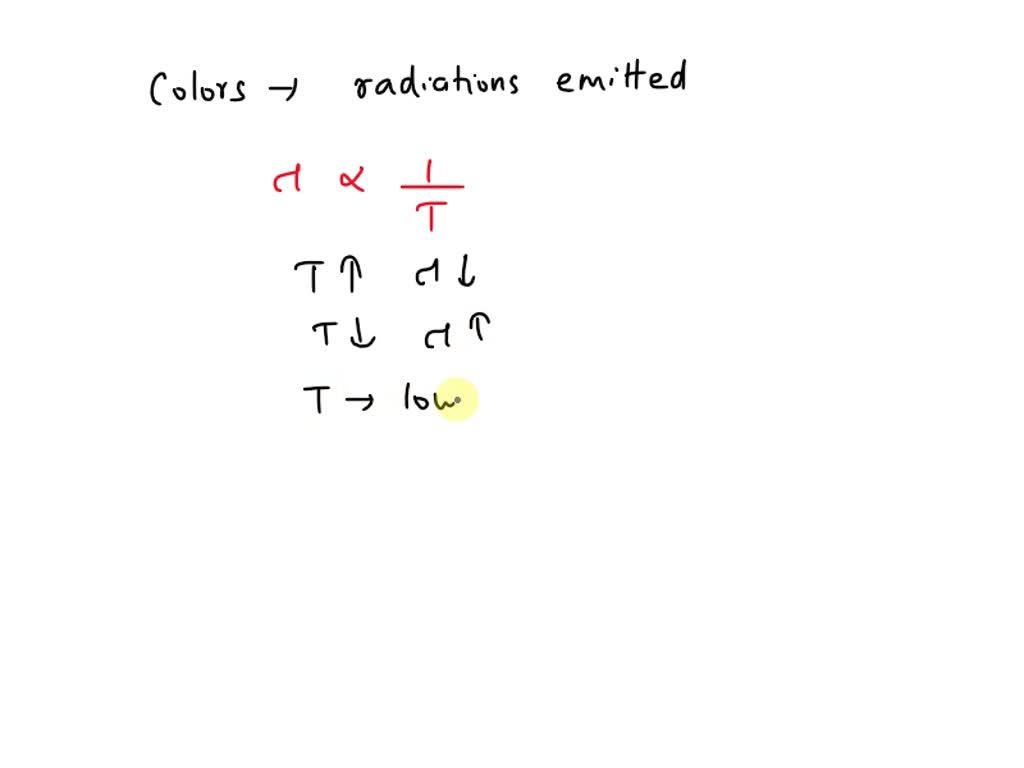 Colors → radiations emitted
λ ∝ 1/T
T ↑ λ ↓
T ↓ λ ↑
T → low